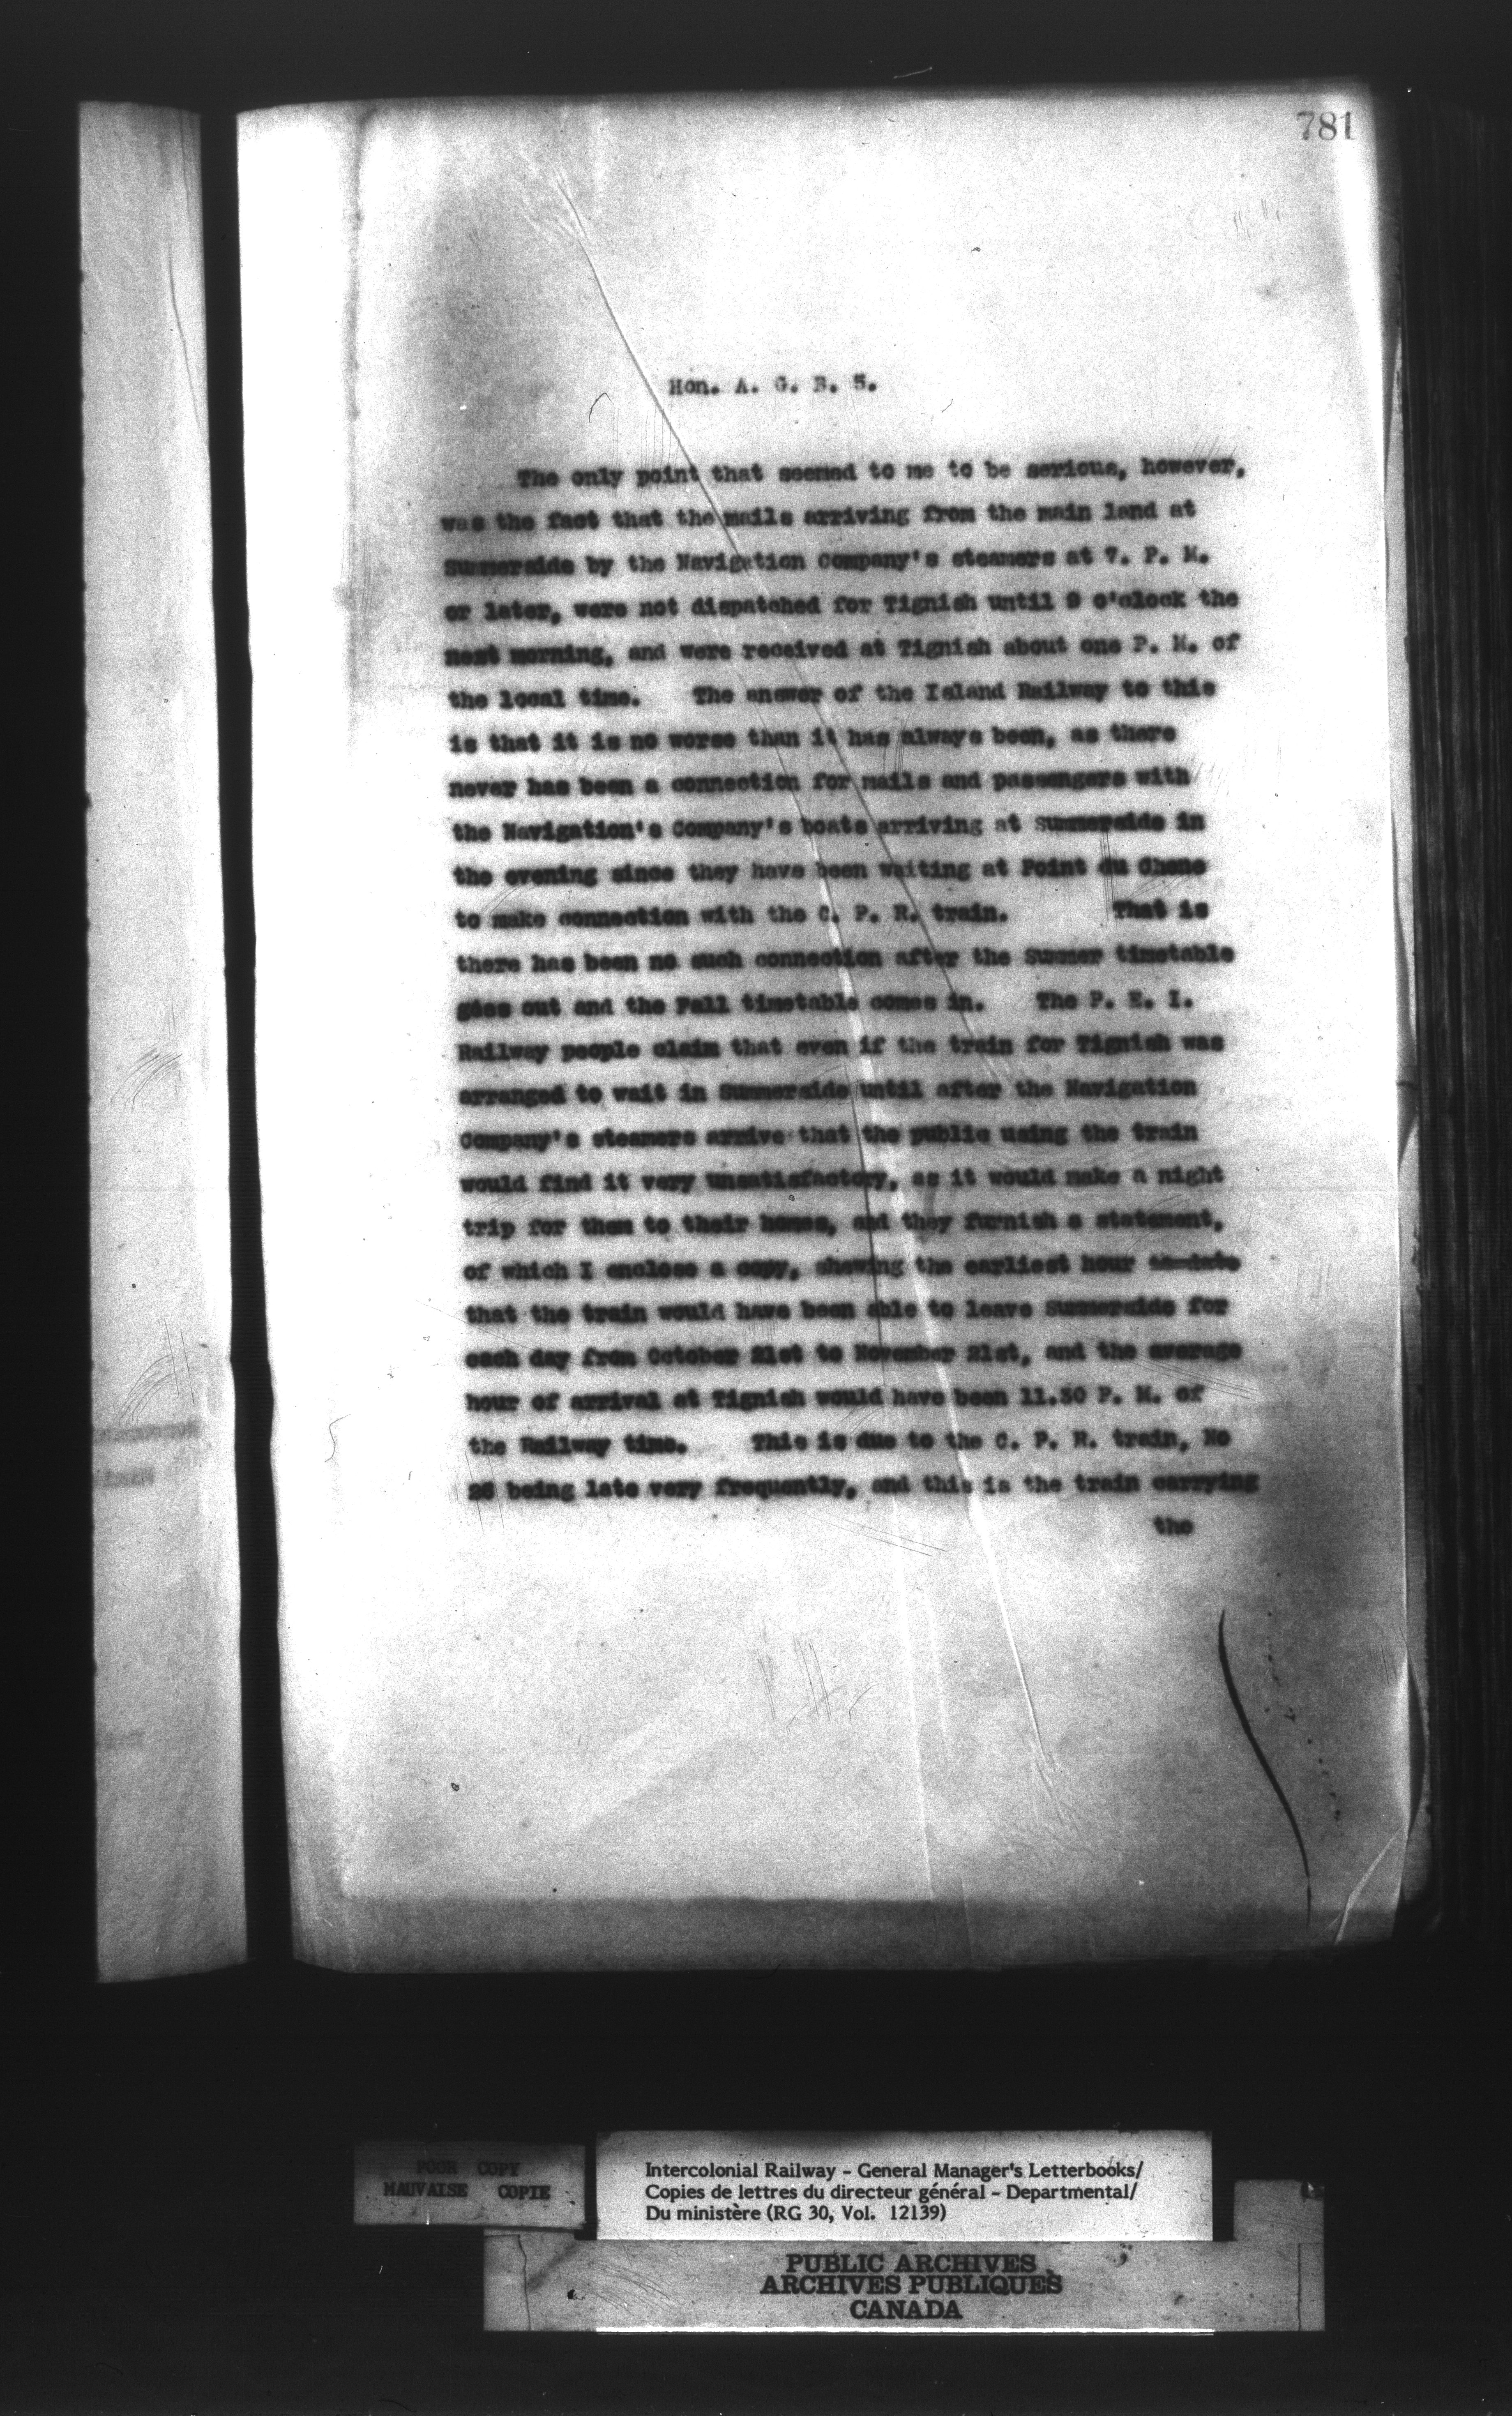 781
Hon. A. G. B. 5.
The only point that seemed to me to be serious, however,
was the fact that the mails arriving from the main land at
Summerside by the Navigation Company's steamers at 7. P. M.
or later, were not dispatched for Tignish until 9 o'clock the
next morning, and were received at Tignish about one P. M. of
the local time. The answer of the Island Railway to this
is that it is no worse than it has always been, as there
never has been a connection for mails and passengers with
the Navigation's Company's boats arriving at Summerside in
the evening since they have been waiting at Point du Chene
to make connection with the C. P. R. train. That is
there has been no such connection after the Summer timetable
goes out and the Fall timetable comes in. The P. E. I.
Railway people claim that even if the train for Tignish was
arranged to wait in Summerside until after the Navigation
Company's steamers arrive that the public using the train
would find it very unsatisfactory, as it would make a night
trip for them to their homes, and they furnish a statement,
of which I enclose a copy, showing the earliest hour
that the train would have been able to leave Summerside for
each day from October 21st to November 21st, and the average
hour of arrival at Tignish would have been 11.50 P. M. of
the Railway time. This is due to the C. P. R. train, No
26 being late very frequently, and this is the train carrying
the
POOR COPY
MAUVAISE COPIE
Intercolonial Railway - General Manager's Letterbooks/
Copies de lettres du directeur général - Departmental/
Du ministère (RG 30, Vol. 12139)
PUBLIC ARCHIVES
ARCHIVES PUBLIQUES
CANADA